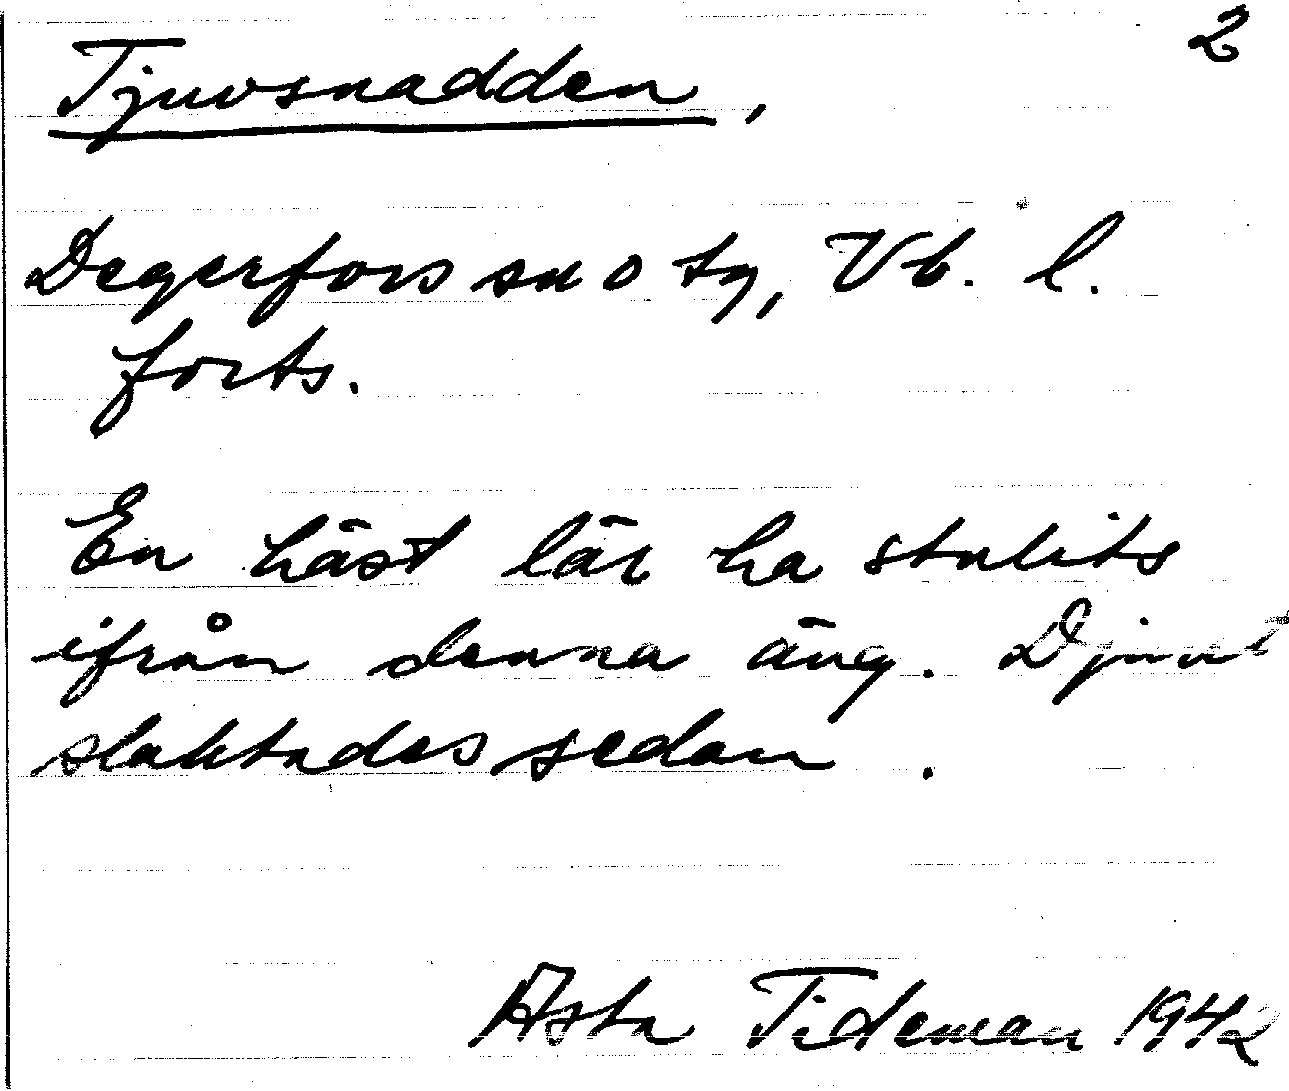 2
Tjuvsnadden,
Degerfors sn o tg, Vb. l.
forts.
En häst lär ha stulits
ifrån denna äng. Djuret
slaktades sedan.
Asta Tideman 1942